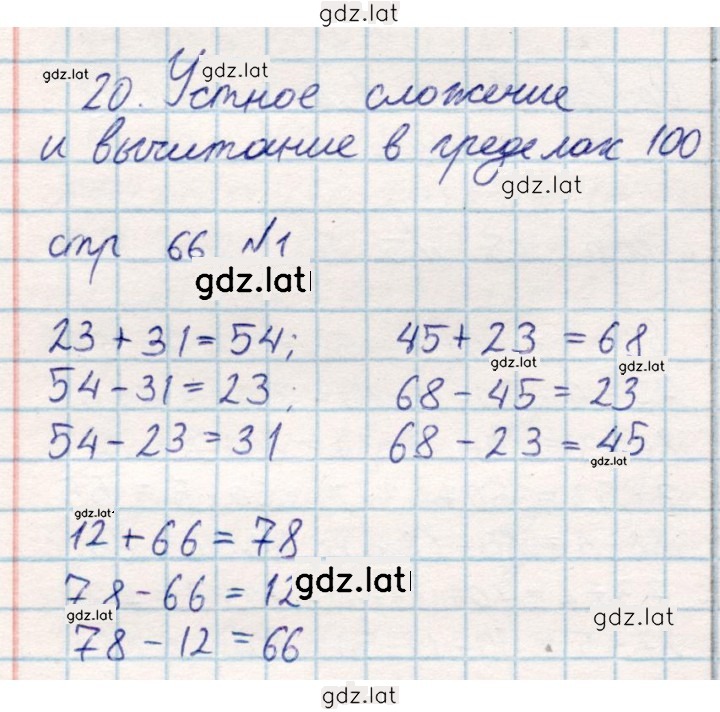 gdz.lat
gdz.lat gdz.lat
20. Устное сложение
и вычитание в пределах 100
gdz.lat
стр 66 №1
gdz.lat
23 + 31 = 54; 45 + 23 = 68
gdz.lat gdz.lat
54 - 31 = 23; 68 - 45 = 23
54 - 23 = 31 68 - 23 = 45
gdz.lat
gdz.lat
12 + 66 = 78
gdz.lat
78 - 66 = 12
gdz.lat gdz.lat
78 - 12 = 66
gdz.lat